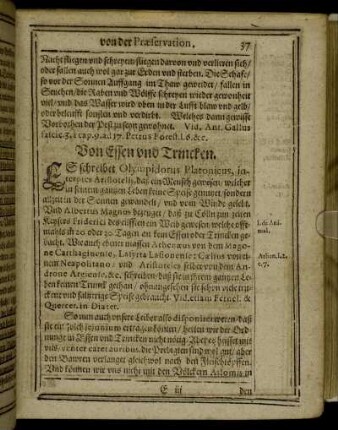 von der Præservation. 37
Nacht fliegen vnd schreyen fliegen darvon vnd verlieren sich/
oder fallen auch wol gar zur Erden vnd sterben. Die Schafe/
so vor der Sonnen Auffgang im Thaw geweidet/ fallen in
die Raben vnd Wölffe schreyen wieder gewonheit
viel/ vnd das Wasser wird oben in der Lufft blaw vnd gelb/
oder vnd verdirbt. Welches dann gewisse
Vorbothen der Pest zu seyn gewohnet. Vid. Ant. Gallus
fascic. 5. Petrus Forest. l. 6. &c.
Von Essen vnd Trincken.
ES schreibet Olympidorus Platonicus, in-
terpres Aristotelis, daß ein Mensch gewesen/ welcher
in seinem gantzen Leben keine Speise genutzt, sondern
allzeit in der Sonnen gewandelt/ vnd vom Winde gelebt.
Vnd Albertus Magnus bezeuget/ daß zu Cölln zur zeiten
Kaysers Friderici des ein Weib gewesen welches offt-
mals in 20 oder 30 Tagen kein Essen oder Trincken ge-
braucht. Wie auch ebener massen Athenæus von dem Mago-
ne Carthaginense, Lasyrta Lasionense; Cælius von ei-
nem Neapolitano; vnd Aristoteles selber von dem An-
drone Argivo, &c. schreiben/ daß sie in jhrem gantzen Le-
ben keinen Trunck gethan/ ohnangesehen sie schon
ne vnd saltzige Speise gebraucht. Vid. etiam Fernel. &
Quercet. in Diætet.
So nun auch vnsere Leiber also disponieret weren/ daß
sie ein solch jejunium ertragen könten/ hetten wir der Ord-
nunge in Essen vnd Trincken nicht nötig. Aber es heisset mit
vns/ venter caret auribus. die Predigten sind wol gut/ aber
den Bawren verlanget gleichwol nach den Fleischtöpffen.
Vnd können wir vns nicht mit den Völckern Athomia in
E iij den